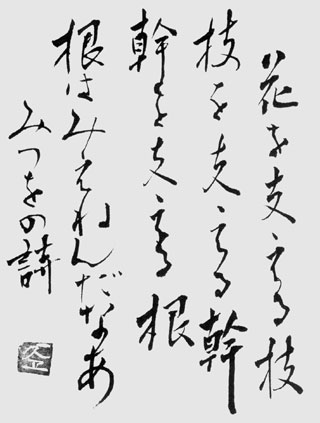 花を支える枝
枝を支える幹
幹を支える根
根はみえねんだなあ
みつをの詩